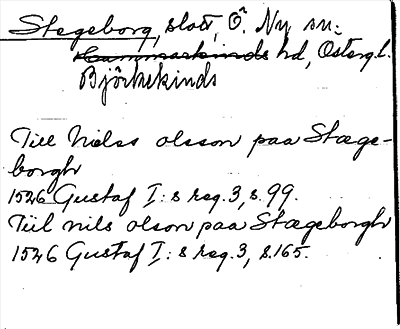 Stegeborg, slott, Ö. Ny sn:
Hammarkinds hd, Österg.l.
Björkekinds
Till Nielss olsson paa Stæge-
borgh
1526 Gustaf I: s reg. 3, s. 99.
Tiil nils olson paa Stægeborgh
1526 Gustaf I: s reg. 3, s. 165.